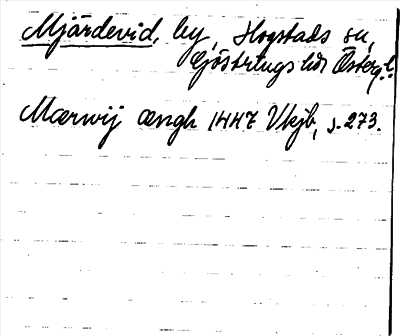 Mjärdevid, by, Hogstads sn,
Göstrings hd, Österg.l.
Mærwij ængh 1447 Vkjb, s. 273.